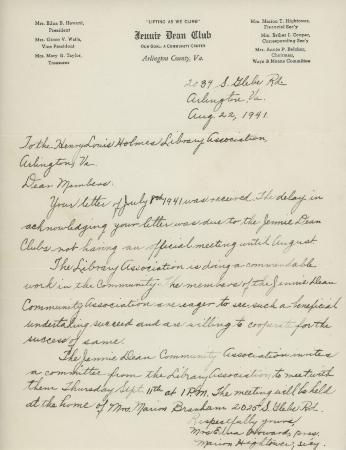 "LIFTING AS WE CLIMB"
Mrs. Ellen B. Howard,
President
Mrs. Grace V. Wells,
Vice President
Mrs. Mary G. Taylor,
Treasurer
Jennie Dean Club
OUR GOAL: A COMMUNITY CENTER
Arlington County, Va.
Mrs. Marion T. Hightower,
Financial Sec'y
Mrs. Esther I. Cooper,
Corresponding Sec'y
Mrs. Annie P. Belcher,
Chairman,
Ways & Means Committee
2034 S. Glebe Rd.
Arlington, Va.
Aug. 22, 1941.
To the Henry Louis Holmes Library Association
Arlington, Va
Dear Members:
Your letter of July 8th 1941 was received. The delay in
acknowledging your letter was due to the Jennie Dean
Clubs not having an official meeting until August.
The Library Association is doing a commendable
work in the Community. The members of the Jennie Dean
Community Association are eager to see such a beneficial
undertaking succeed and are willing to cooperate for the
success of same.
The Jennie Dean Community Association invites
a committee from the Library Association to meet with
them Thursday Sept. 11th at 1 P.M. The meeting will be held
at the home of Mrs. Marion Branham 2025 S. Glebe Rd.
Respectfully yours
Mrs Ellen Howard, pres.
Marion Hightower, sec'y.